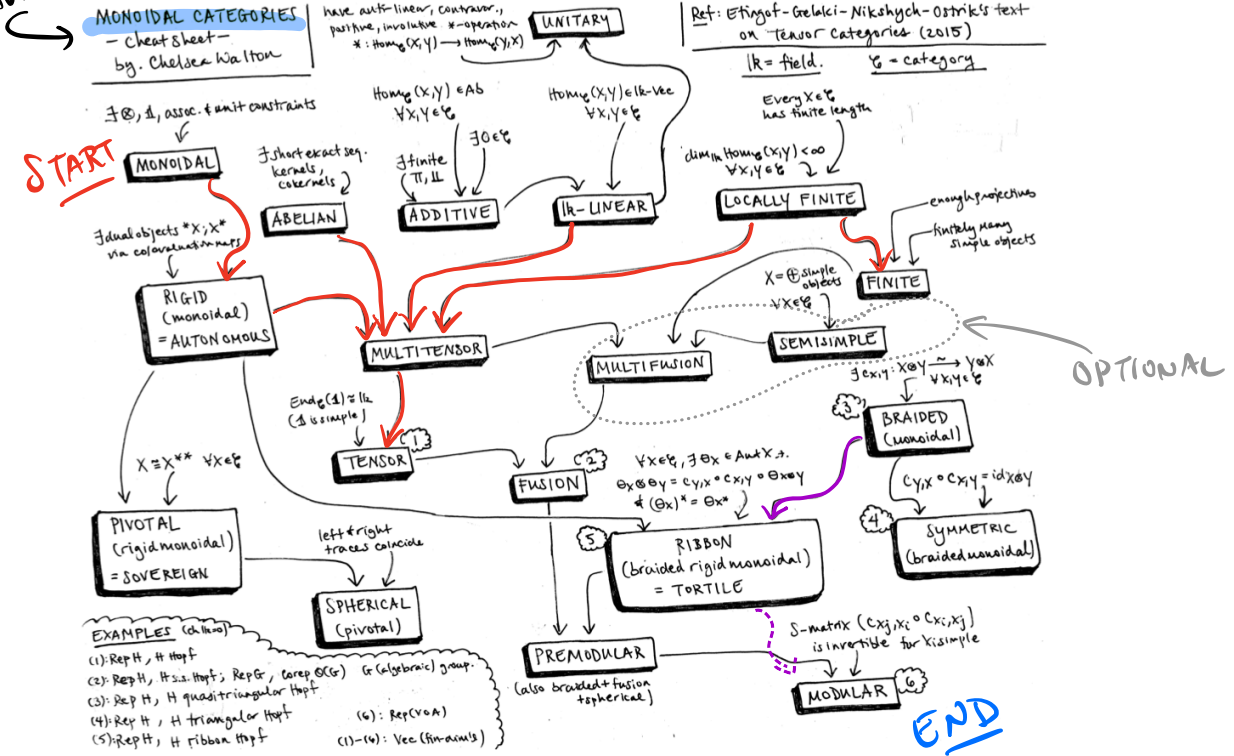 MONOIDAL CATEGORIES
- Cheat Sheet -
by. Chelsea Walton
have anti-linear, contravar.,
positive, involutive *-operation
* : Hom𝒞(X,Y) → Hom𝒞(Y,X)
UNITARY
Ref: Etingof-Gelaki-Nikshych-Ostrik's text
on Tensor Categories (2015)
lk = field. 𝒞 = category
∃ ⊗, 𝟙, assoc. & unit constraints
START
MONOIDAL
∃ short exact seq.
kernels,
cokernels
ABELIAN
Hom𝒞(X,Y) ∈ Ab
∀X,Y∈𝒞
∃ 0∈𝒞
∃ finite
π, ⨿
ADDITIVE
Hom𝒞(X,Y) ∈ lk-Vec
∀X,Y∈𝒞
lk-LINEAR
Every X∈𝒞
has finite length
dim lk Hom𝒞(X,Y) < ∞
∀X,Y∈𝒞
LOCALLY FINITE
enough projectives
finitely many
simple objects
FINITE
∃ dual objects *X; X*
via co/evaluation maps
RIGID
(monoidal)
= AUTONOMOUS
MULTITENSOR
X = ⊕ simple
objects
∀X∈𝒞
SEMISIMPLE
MULTIFUSION
OPTIONAL
∃ cX,Y : X⊗Y ~→ Y⊗X
∀X,Y∈𝒞
3
BRAIDED
(monoidal)
End𝒞(𝟙) ≅ lk
(𝟙 is simple)
1
TENSOR
2
FUSION
X ≅ X** ∀X∈𝒞
PIVOTAL
(rigid monoidal)
= SOVEREIGN
∀X∈𝒞, ∃ θX ∈ Aut X s.t.
θX⊗θY = cY,X ∘ cX,Y ∘ θX⊗Y
& (θX)* = θX*
5
RIBBON
(braided rigid monoidal)
= TORTILE
cY,X ∘ cX,Y = idX⊗Y
4
SYMMETRIC
(braided monoidal)
left & right
traces coincide
SPHERICAL
(pivotal)
PREMODULAR
(also braided + fusion
+ spherical)
S-matrix (cXj,Xi ∘ cXi,Xj)
is invertible for Xi simple
MODULAR
6
END
EXAMPLES
(1): Rep H, H Hopf
(2): Rep H, H s.s. Hopf; Rep G, corep O(G) G (algebraic) group.
(3): Rep H, H quasitriangular Hopf
(4): Rep H, H triangular Hopf
(5): Rep H, H ribbon Hopf
(6): Rep(VOA)
(1)-(6): Vec (fin-dim'l)